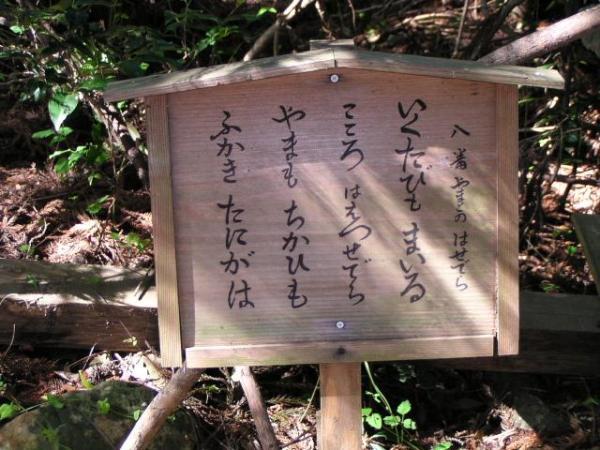 八番 やまの はせでら
いくたびも まいる
こころ ははつせでら
やまも ちかひも
ふかき たにがは